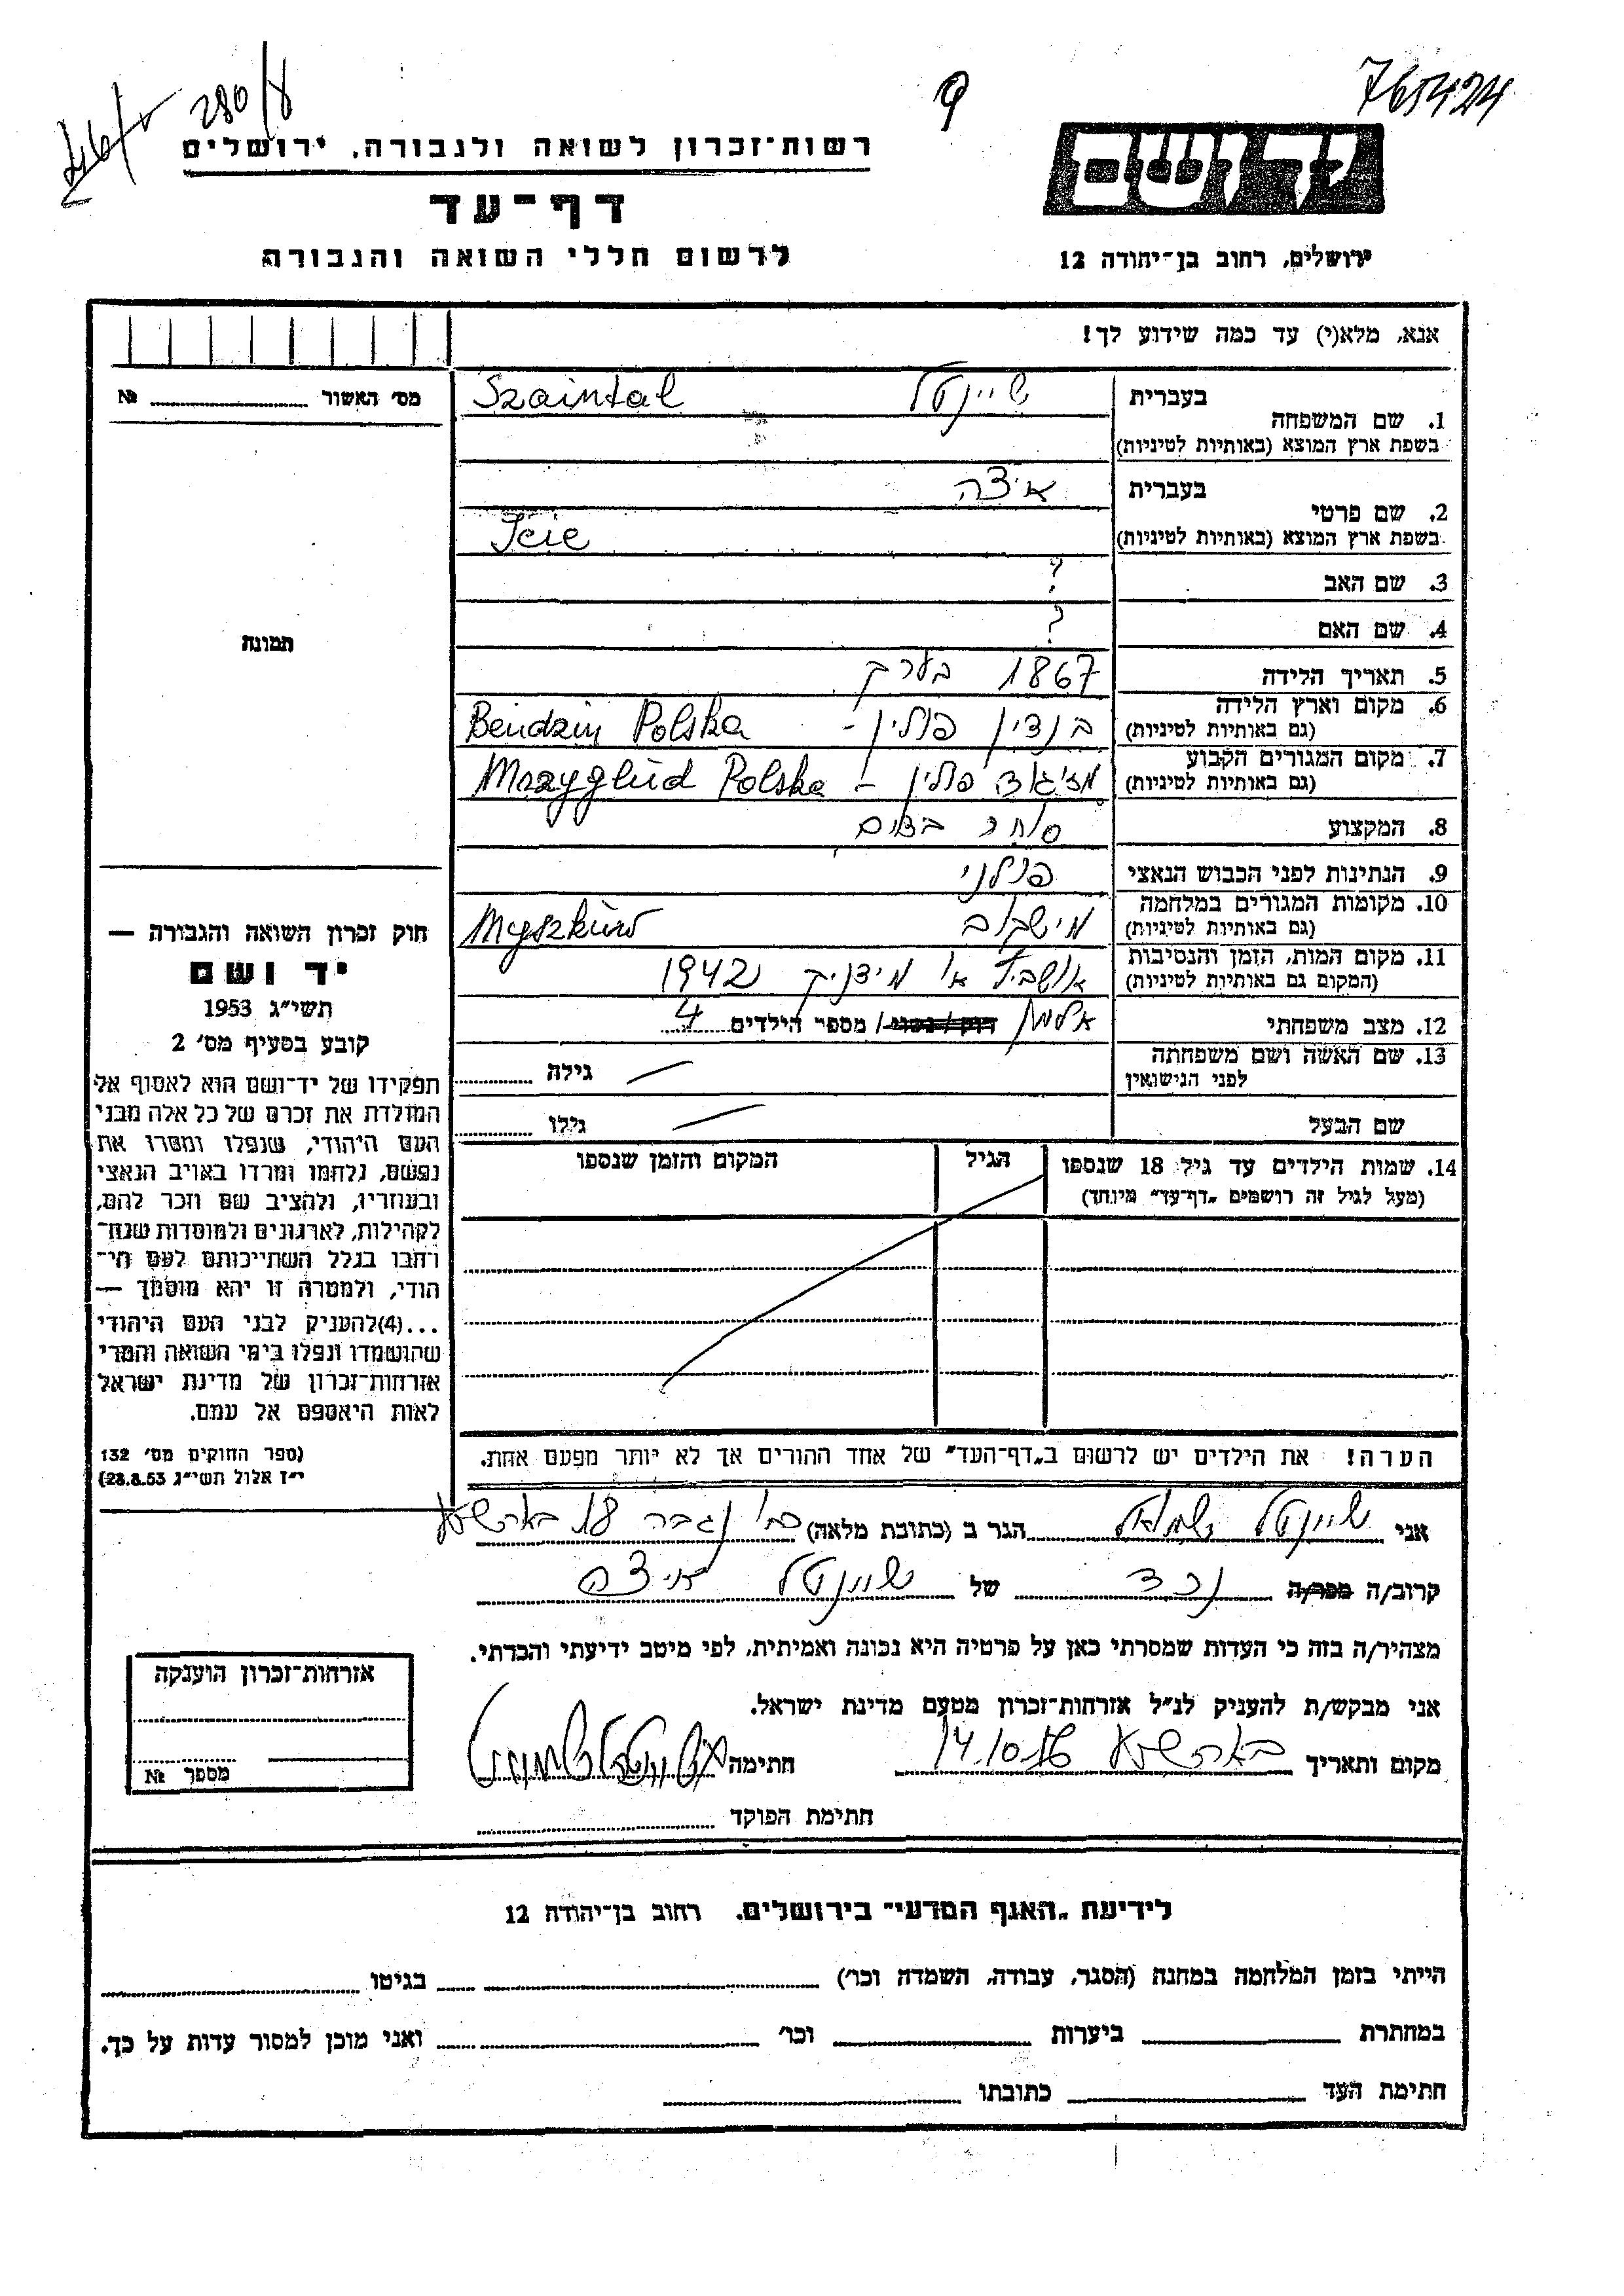 280/8
765424
יד ושם
רשות־זכרון לשואה ולגבורה, ירושלים
דף־עד
לרשום חללי השואה והגבורה
ירושלים, רחוב בן־יהודה 12
אנא, מלא(י) עד כמה שידוע לך!
מס׳ האשור № 
בעברית
שיינטל Szaintal
1. שם המשפחה
בשפת ארץ המוצא (באותיות לטיניות)
בעברית
איצה
2. שם פרטי
בשפת ארץ המוצא (באותיות לטיניות)
Icie
3. שם האב ?
4. שם האם ?
תמונה
5. תאריך הלידה 1867 בערך
6. מקום וארץ הלידה
(גם באותיות לטיניות)
בנדין פולין - Bendzin Polska
7. מקום המגורים הקבוע
(גם באותיות לטיניות)
פולין - Mrzyglud Polska
8. המקצוע סוחר בצים
9. הנתינות לפני הכבוש הנאצי פולני
10. מקומות המגורים במלחמה
(גם באותיות לטיניות)
מישקוב Myszkuw
11. מקום המות, הזמן והנסיבות
(המקום גם באותיות לטיניות)
או 1942
12. מצב משפחתי אלמן רווק / נשוי / מספר הילדים 4
13. שם האשה ושם משפחתה
לפני הנישואין
גילה
שם הבעל גילו
14. שמות הילדים עד גיל 18 שנספו
(מעל לגיל זה רושמים „דף־עד״ מיוחד)
הגיל
המקום והזמן שנספו
הערה! את הילדים יש לרשום ב„דף־העד״ של אחד ההורים אך לא יותר מפעם אחת.
חוק זכרון השואה והגבורה —
יד ושם
תשי״ג 1953
קובע בסעיף מס׳ 2
תפקידו של יד־ושם הוא לאסוף אל
המולדת את זכרם של כל אלה מבני
העם היהודי, שנפלו ומסרו את
נפשם, נלחמו ומרדו באויב הנאצי
ובעוזריו, ולהציב שם וזכר להם,
לקהילות, לארגונים ולמוסדות שנח־
רבו בגלל השתייכותם לעם הי־
הודי, ולמטרה זו יהא מוסמך —
...(4)להעניק לבני העם היהודי
שהושמדו ונפלו בימי השואה והמרי
אזרחות־זכרון של מדינת ישראל
לאות היאספם אל עמם.
(ספר החוקים מס׳ 132
י״ז אלול תשי״ג 28.8.53)
אני שיינטל שמואל הגר ב (כתובת מלאה) רח׳ נגבה 18 באר שבע
קרוב/ה מכר/ה נכד של שיינטל איצה
מצהיר/ה בזה כי העדות שמסרתי כאן על פרטיה היא נכונה ואמיתית, לפי מיטב ידיעתי והכרתי.
אני מבקש/ת להעניק לנ״ל אזרחות־זכרון מטעם מדינת ישראל.
מקום ותאריך באר שבע חתימה שיינטל שמואל
חתימת הפוקד
אזרחות־זכרון הוענקה
מספר №
לידיעת „האגף המדעי״ בירושלים, רחוב בן־יהודה 12
הייתי בזמן המלחמה במחנה (הסגר, עבודה, השמדה וכו׳) בגיטו
במחתרת ביערות וכו׳ ואני מוכן למסור עדות על כך.
חתימת העד כתובתו